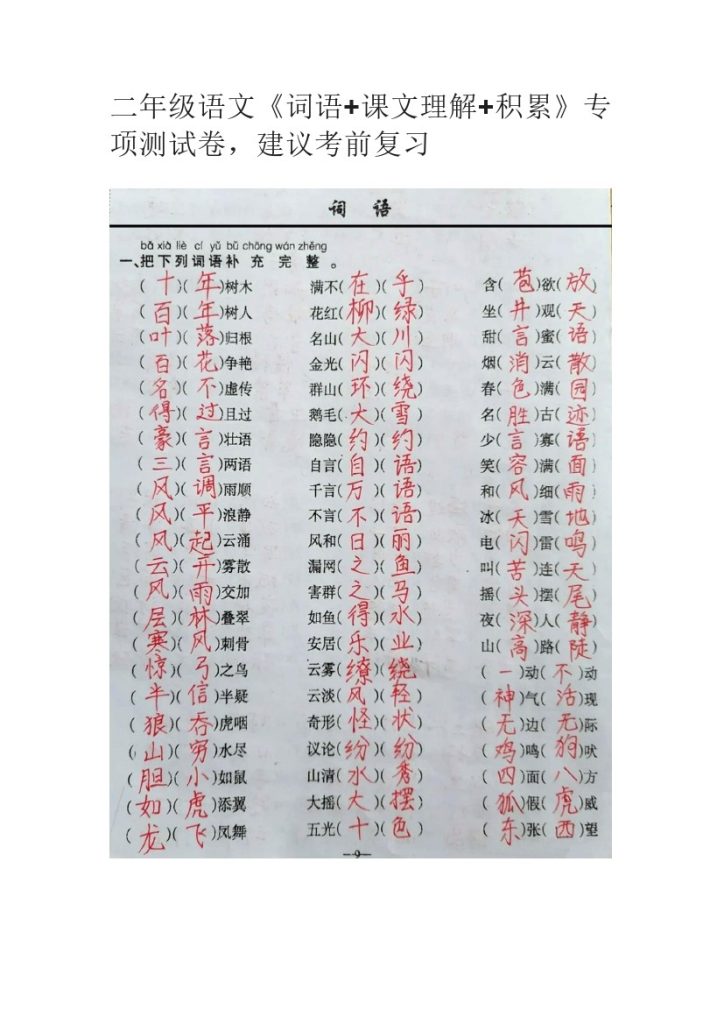 二年级语文《词语+课文理解+积累》专
项测试卷，建议考前复习
词 语
bǎ xià liè cí yǔ bǔ chōng wán zhěng
一、把下列词语补充完整。
(十)(年)树木 满不(在)(乎) 含(苞)欲(放)
(百)(年)树人 花红(柳)(绿) 坐(井)观(天)
(叶)(落)归根 名山(大)(川) 甜(言)蜜(语)
(百)(花)争艳 金光(闪)(闪) 烟(消)云(散)
(名)(不)虚传 群山(环)(绕) 春(色)满(园)
(得)(过)且过 鹅毛(大)(雪) 名(胜)古(迹)
(豪)(言)壮语 隐隐(约)(约) 少(言)寡(语)
(三)(言)两语 自言(自)(语) 笑(容)满(面)
(风)(调)雨顺 千言(万)(语) 和(风)细(雨)
(风)(平)浪静 不言(不)(语) 冰(天)雪(地)
(风)(起)云涌 风和(日)(丽) 电(闪)雷(鸣)
(云)(开)雾散 漏网(之)(鱼) 叫(苦)连(天)
(风)(雨)交加 害群(之)(马) 摇(头)摆(尾)
(层)(林)叠翠 如鱼(得)(水) 夜(深)人(静)
(寒)(风)刺骨 安居(乐)(业) 山(高)路(陡)
(惊)(弓)之鸟 云雾(缭)(绕) (一)动(不)动
(半)(信)半疑 云淡(风)(轻) (神)气(活)现
(狼)(吞)虎咽 奇形(怪)(状) (无)边(无)际
(山)(穷)水尽 议论(纷)(纷) (鸡)鸣(狗)吠
(胆)(小)如鼠 山清(水)(秀) (四)面(八)方
(如)(虎)添翼 大摇(大)(摆) (狐)假(虎)威
(龙)(飞)凤舞 五光(十)(色) (东)张(西)望
—9—